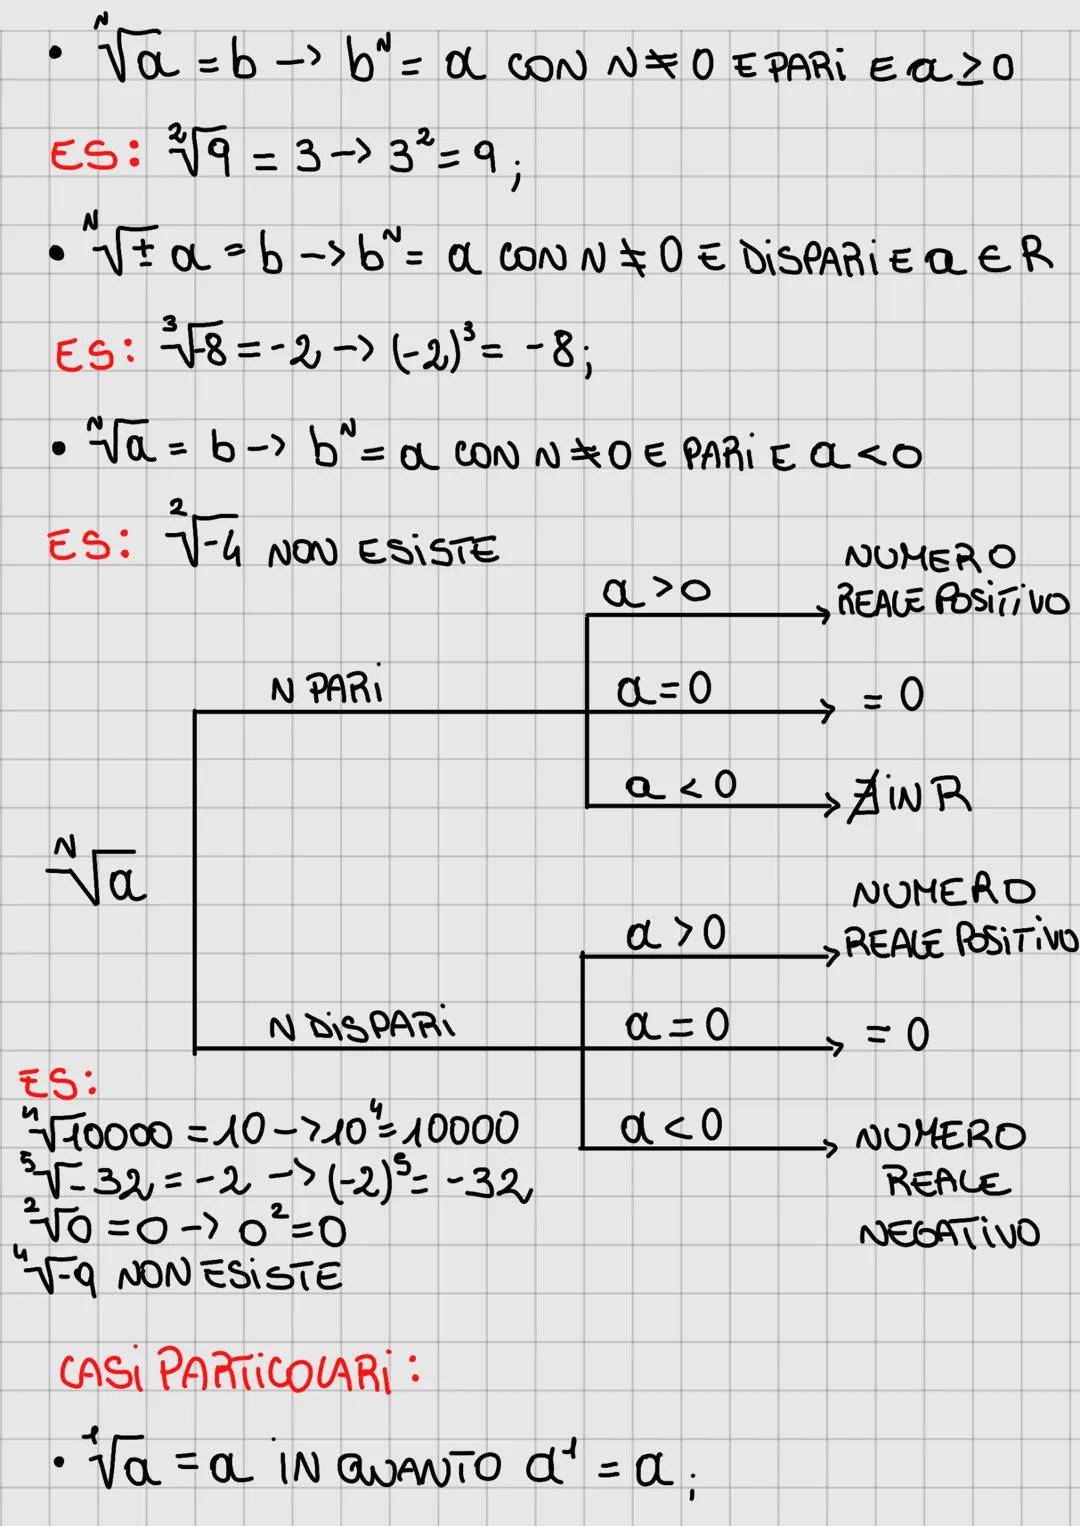 • ᴺ√a = b -> bᴺ = a CON N ≠ 0 E PARI E a ≥ 0
ES: ²√9 = 3 -> 3² = 9;
• ᴺ√± a = b -> bᴺ = a CON N ≠ 0 E DISPARI E a ∈ R
ES: ³√-8 = -2 -> (-2)³ = -8;
• ᴺ√a = b -> bᴺ = a CON N ≠ 0 E PARI E a < 0
ES: ²√-4 NON ESISTE
ᴺ√a
N PARI
a > 0
NUMERO
REALE POSITIVO
a = 0
= 0
a < 0
∄ IN R
N DISPARI
a > 0
NUMERO
REALE POSITIVO
a = 0
= 0
a < 0
NUMERO
REALE
NEGATIVO
ES:
⁴√10000 = 10 -> 10⁴ = 10000
⁵√-32 = -2 -> (-2)⁵ = -32
²√0 = 0 -> 0² = 0
⁴√-9 NON ESISTE
CASI PARTICOLARI:
• ¹√a = a IN QUANTO a¹ = a;